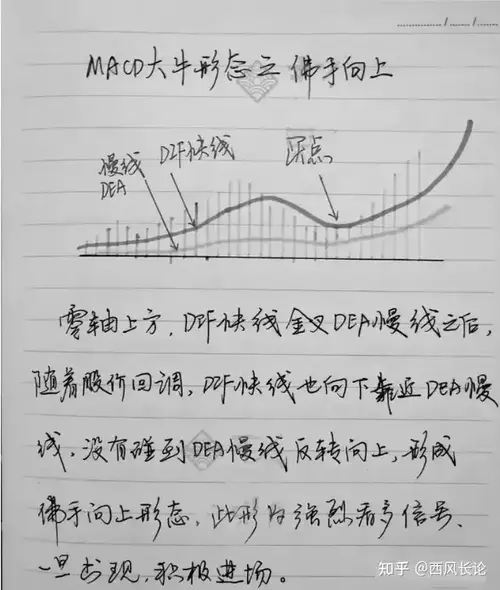 MACD大牛形态之佛手向上
慢线
DEA
DIF快线
买点
零轴上方，DIF快线金叉DEA慢线之后，
随着股价回调，DIF快线也向下靠近DEA慢
线，没有碰到DEA慢线反转向上，形成
佛手向上形态，此形为强烈看多信号、
一旦出现，积极进场。
知乎 @西风长论